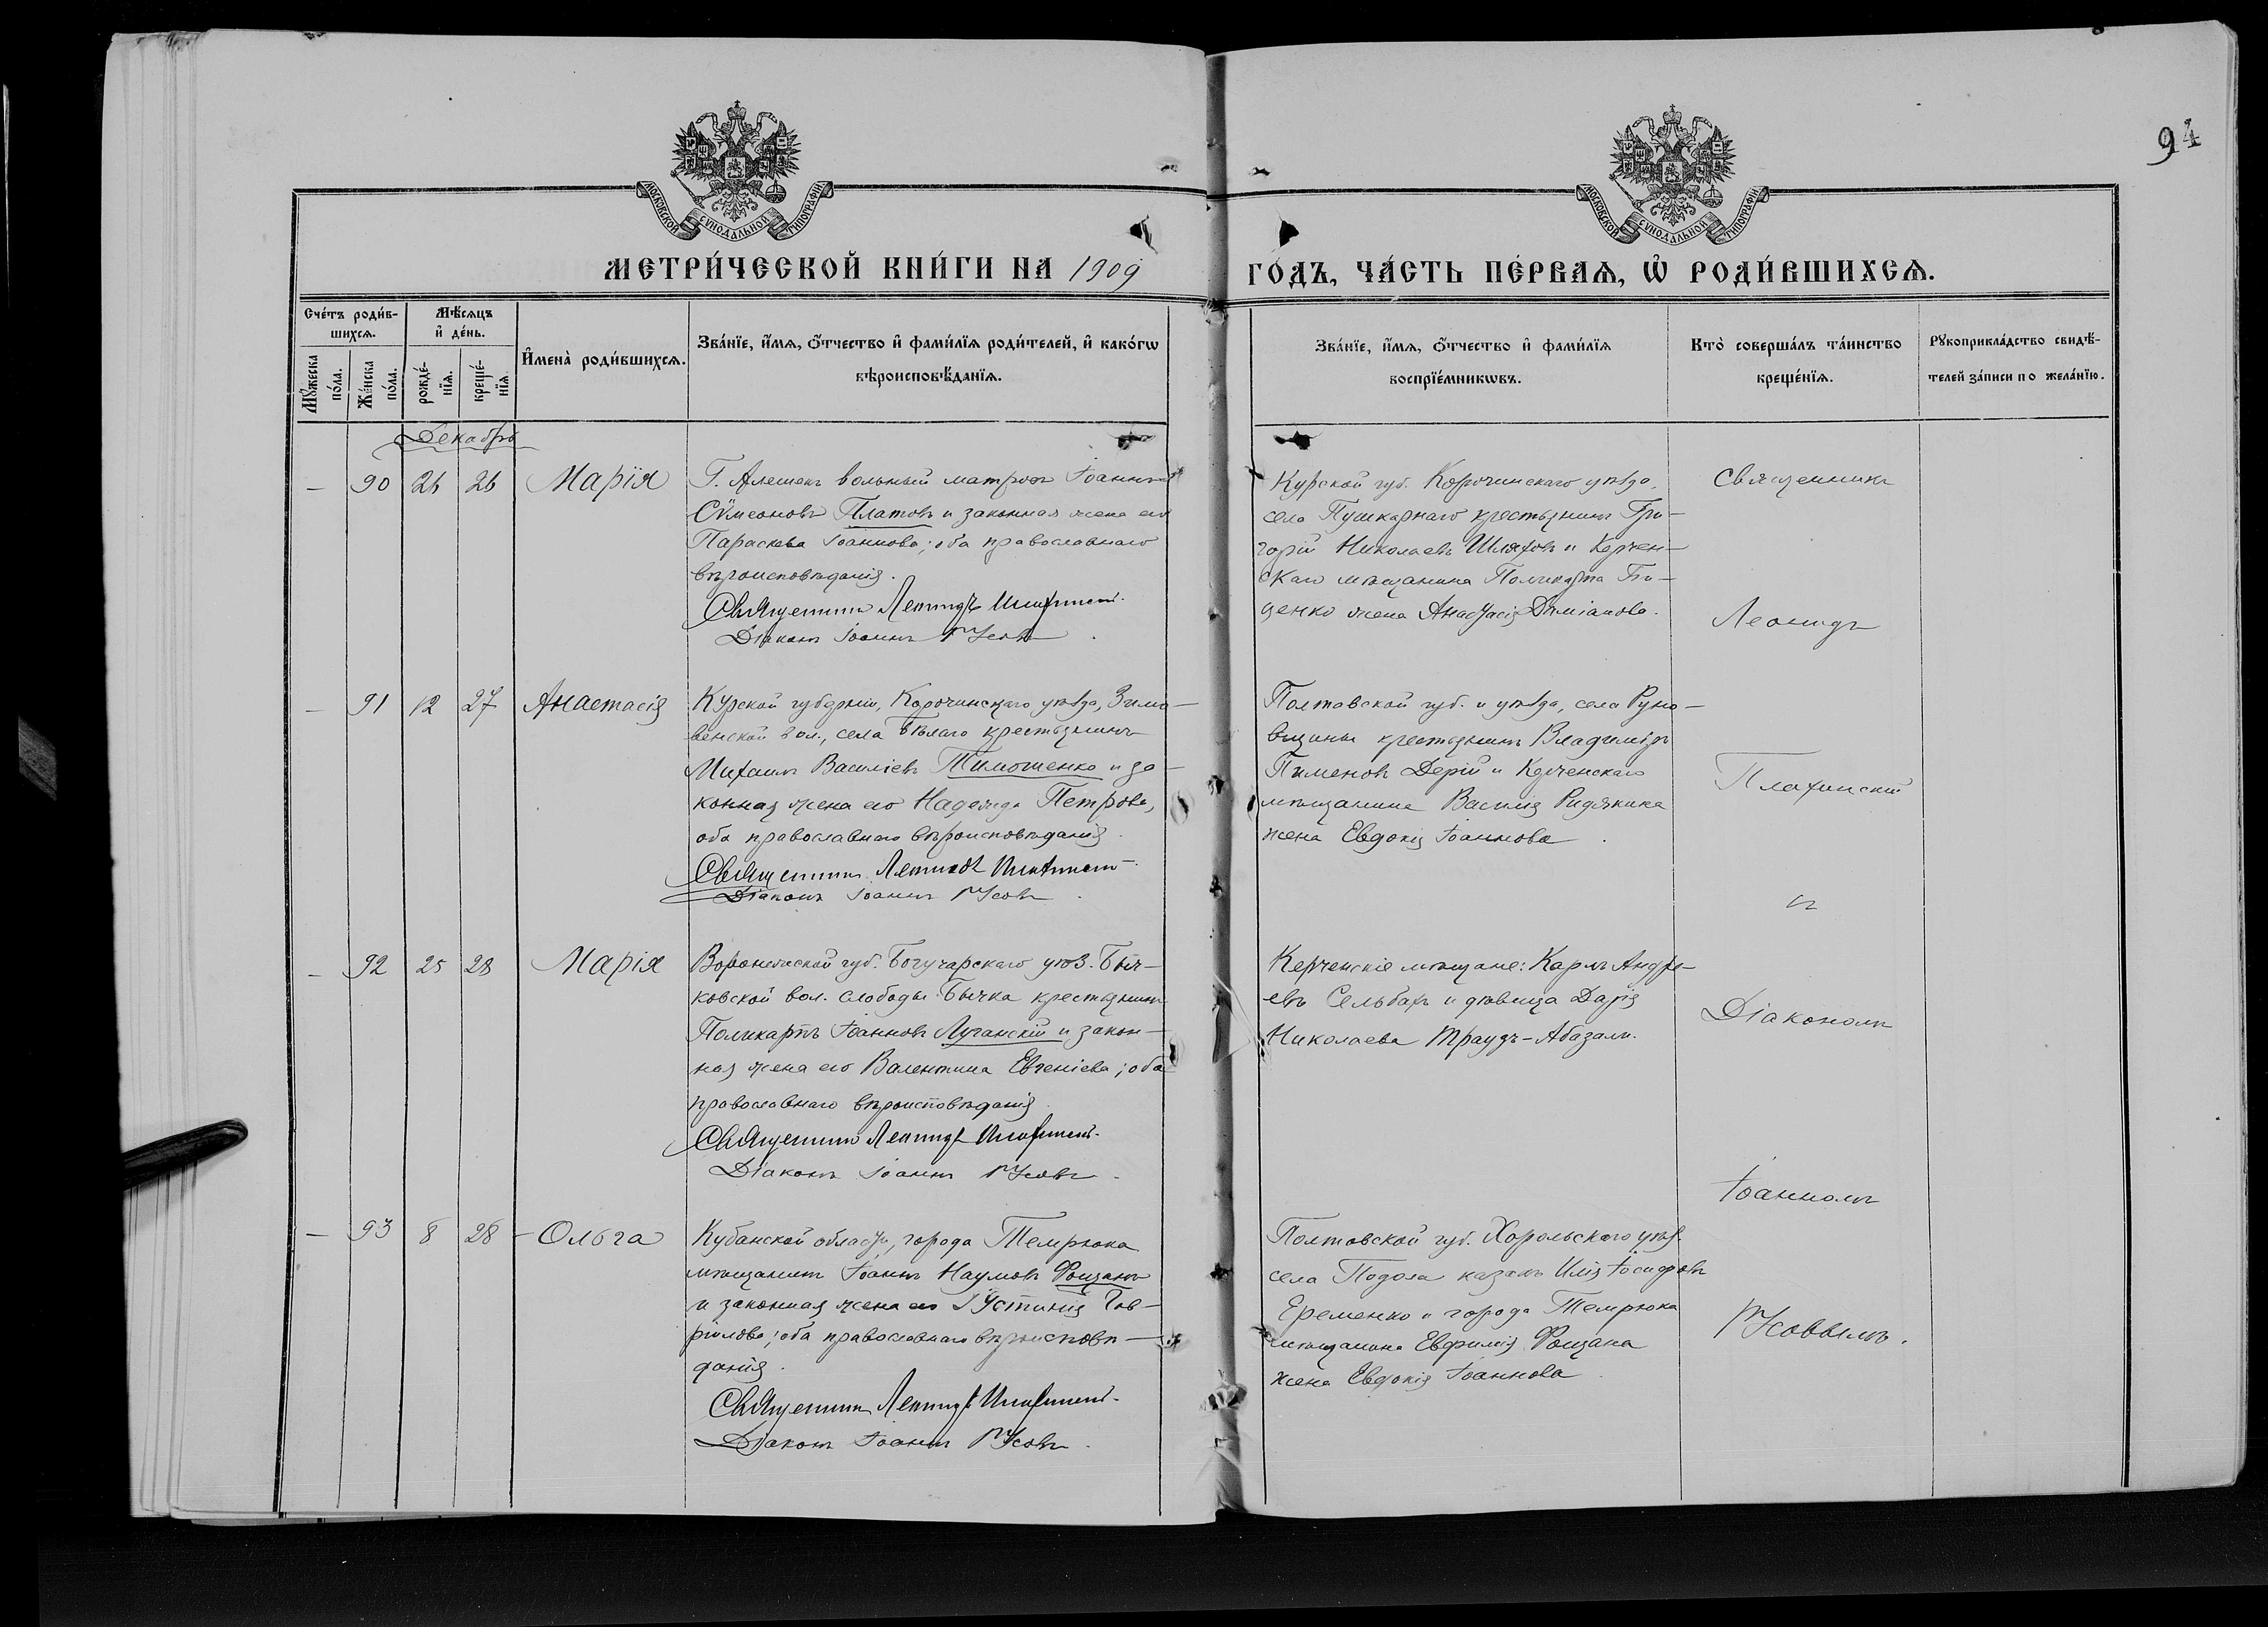 94
МОСКОВСКОЙ СѴНОДАЛЬНОЙ ТИПОГРАФІИ
МОСКОВСКОЙ СѴНОДАЛЬНОЙ ТИПОГРАФІИ
МЕТРИ́ЧЕСКОЙ КНИ́ГИ НА 1909
ГО́ДЪ, ЧА́СТЬ ПЕ́РВАЯ, Ѡ҆ РОДИ́ВШИХСЯ.
Сче́тъ роди́в-
шихся.
Мꙋ́жеска
по́ла.
Же́нска
по́ла.
Мѣ́сяцъ
и҆ де́нь.
рожде́-
нїя.
креще́-
нїя.
И҆мена̀ роди́вшихся.
Зва́нїе, и҆́мя, ѻ҆́тчество и҆ фами́лїя роди́телей, и҆ како́гѡ
вѣроисповѣ́данїя.
Зва́нїе, и҆́мя, ѻ҆́тчество и҆ фами́лїя
воспрїе́мникѡвъ.
Кто̀ соверша́лъ та́инство
креще́нїя.
Рꙋкоприкла́дство свидѣ́-
телей за́писи по жела́нїю.
Декабрь
— 90 26 26 Марія
Г. Алешекъ вольный матросъ Іоаннъ
Сѵмеоновъ Платовъ и законная жена его
Параскева Іоаннова; оба православнаго
вѣроисповѣданія.
Священникъ Леонидъ
Діаконъ Іоаннъ Усовъ
Курской губ. Корочинскаго уѣзда,
села Пушкарнаго крестьянинъ Гри-
горій Николаевъ Шляховъ и Керчен-
скаго мѣщанина Поликарпа
жена Анастасія Даміанова.
— 91 12 27 Анастасія
Курской губерніи, Корочинскаго уѣзда, Зимо-
венской вол., села Бѣлаго крестьянинъ
Михаилъ Василіевъ Тимошенко и за-
конная жена его Надежда Петрова,
оба православнаго вѣроисповѣданія.
Священникъ Леонидъ
Діаконъ Іоаннъ Усовъ
Полтавской губ. и уѣзда, села Руно-
вщины крестьянинъ Владиміръ
Пименовъ Дерій и Керченскаго
мѣщанина Василія Ридякина
жена Евдокія Іоаннова.
— 92 25 28 Марія
Воронежской губ. Богучарскаго уѣз. Быч-
ковской вол. слободы Бычка крестьянинъ
Поликарпъ Іоанновъ Луганскій и закон-
ная жена его Валентина Евгеніева; оба
православнаго вѣроисповѣданія.
Священникъ Леонидъ
Діаконъ Іоаннъ Усовъ
Керченскіе мѣщане: Карлъ Андре-
евъ Сельбахъ и дѣвица Дарія
Николаева Траудъ-Абазали.
— 93 8 28 Ольга
Кубанской области, города Темрюка
мѣщанинъ Іоаннъ Наумовъ Фощанъ
и законная жена его Іустинія Гав-
рилова; оба православнаго вѣроисповѣ-
данія.
Священникъ Леонидъ
Діаконъ Іоаннъ Усовъ
Полтавской губ. Хорольскаго уѣз.
села Подола казакъ Илія Іосифовъ
Еременко и города Темрюка
мѣщанина Евфимія Фощана
жена Евдокія Іоаннова.
Священникъ
Леонидъ
съ
Діакономъ
Іоанномъ
Усовымъ.